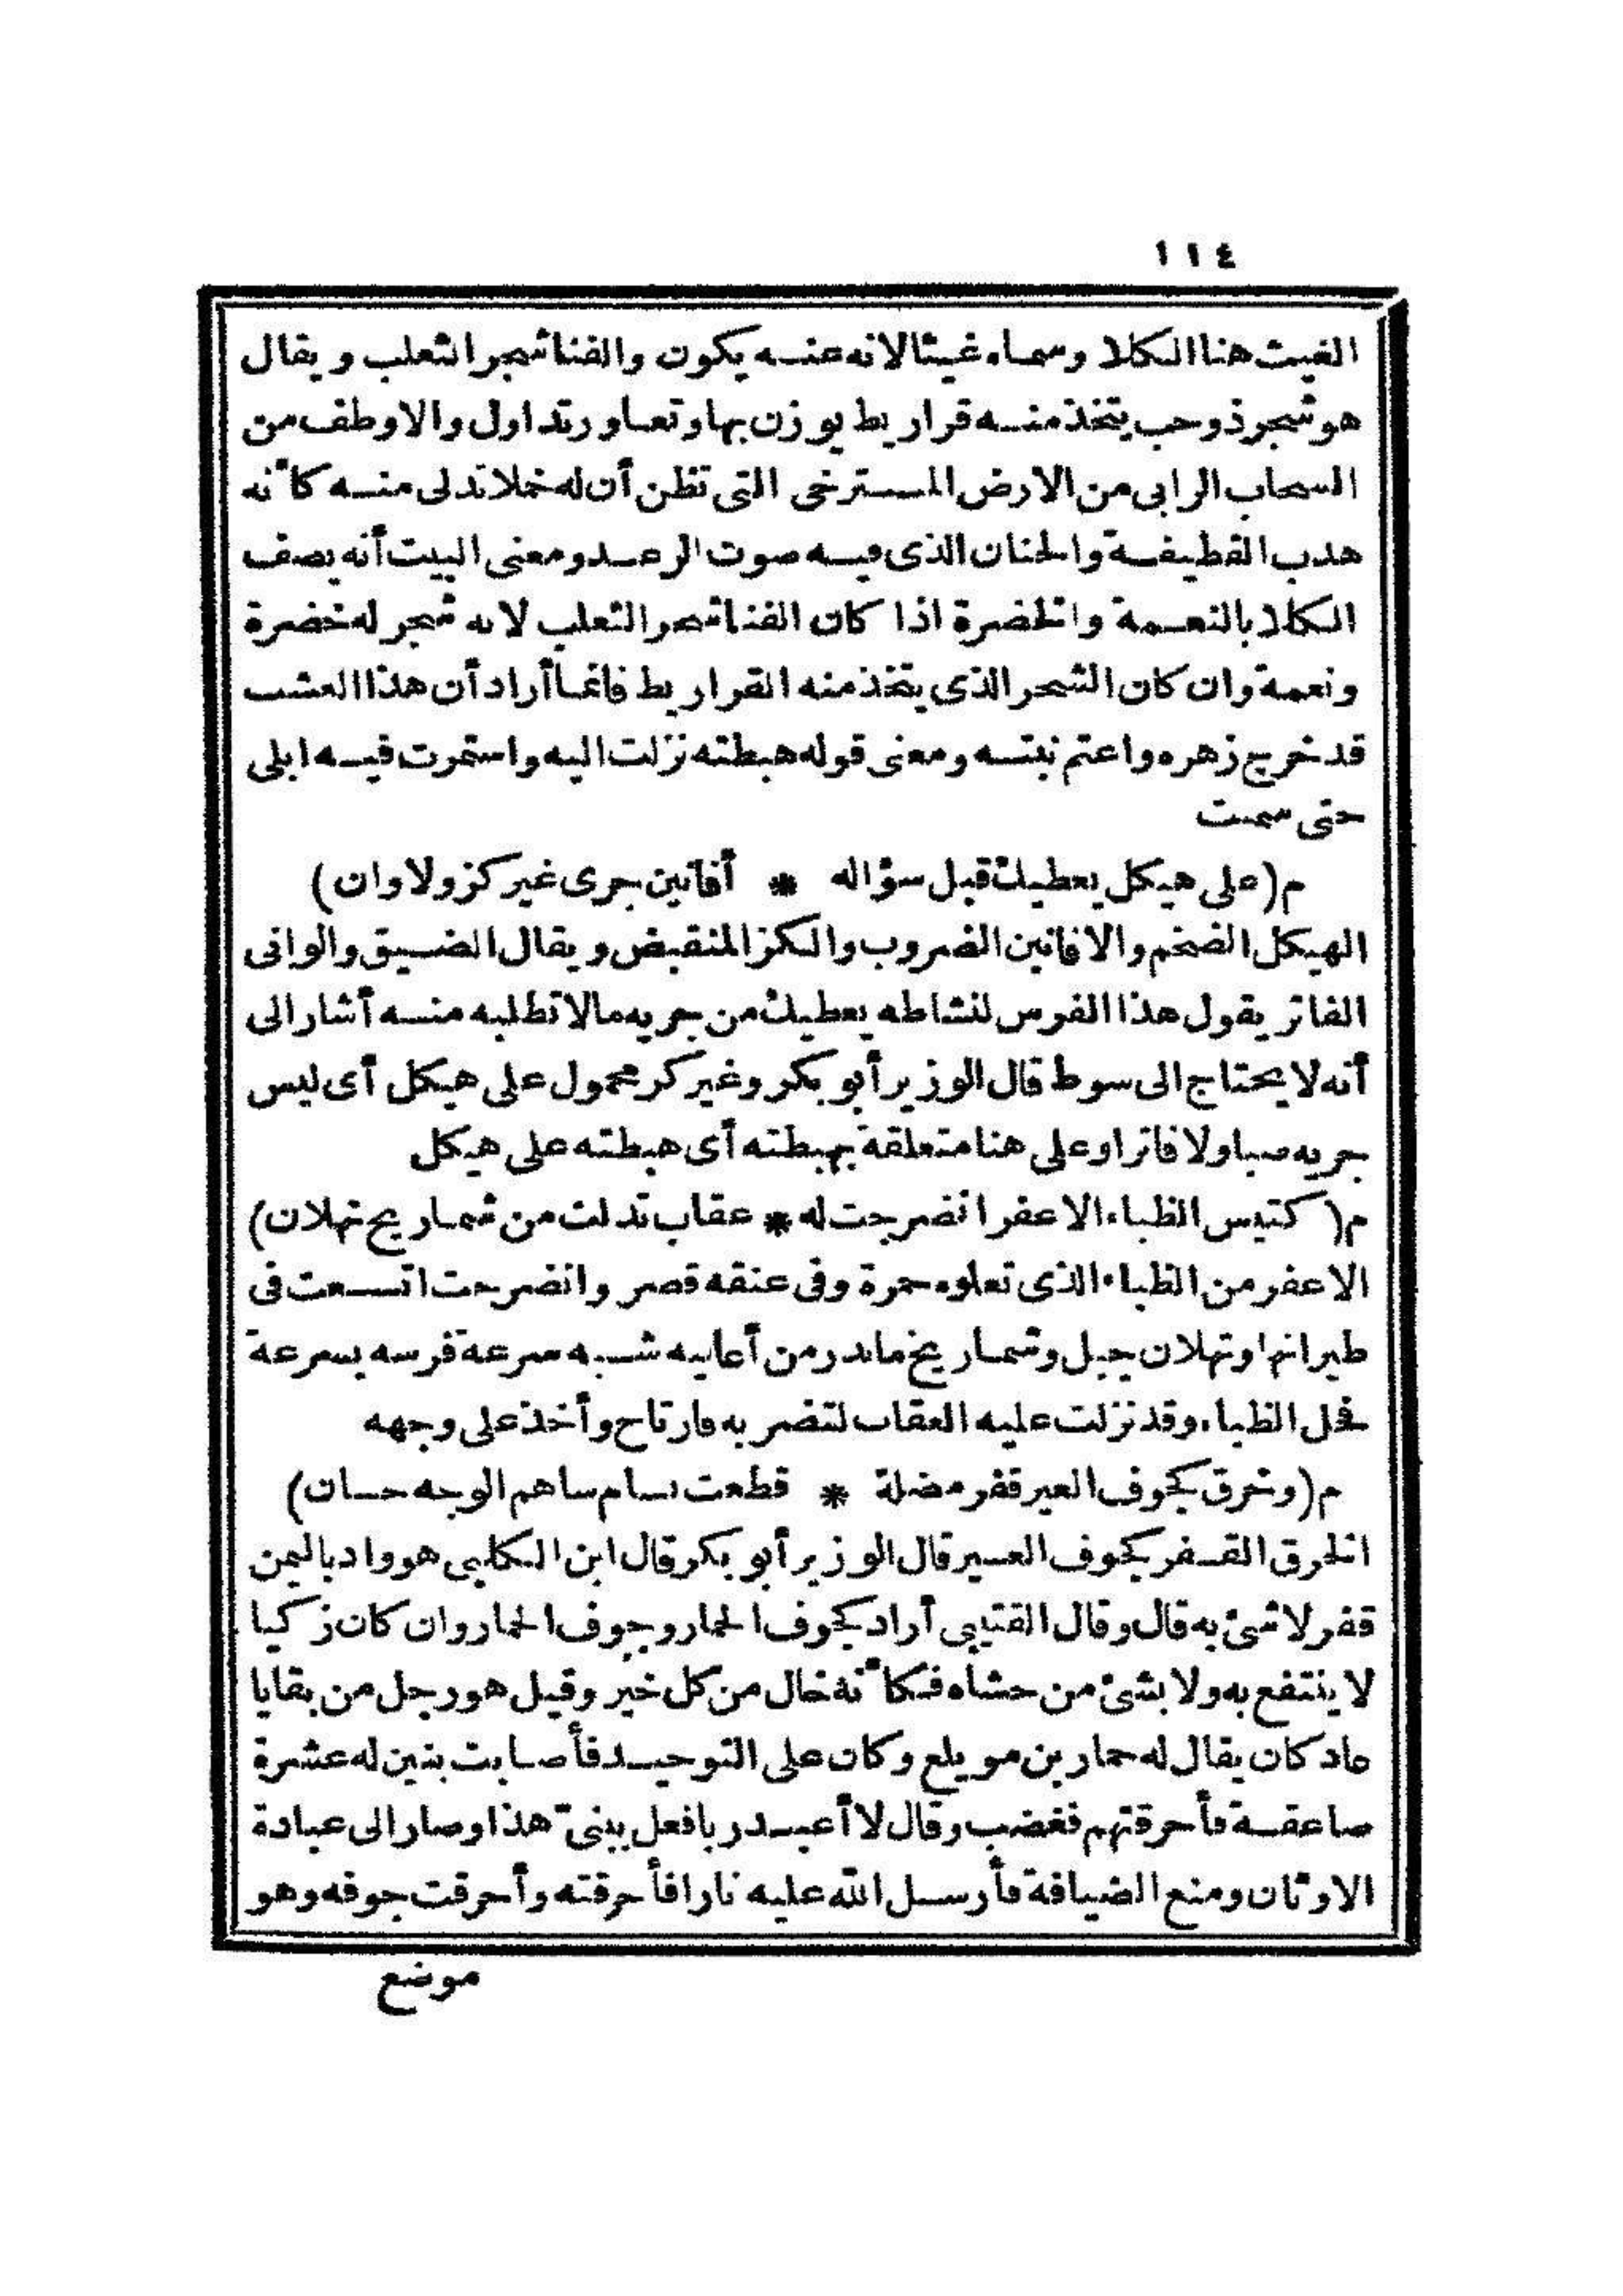 ١١٤
الغيث هنا الكلا وسماه غيثا لانه عنه يكون والفنا شجر الثعلب ويقال
هو شجر ذو حب يتخذ منه قراريط يوزن بها وتعاور تداول والاوطف من
السحاب الرابى من الارض المسترخى التى تظن أن له خملا تدلى منه كأنه
هدب القطيفة والحنان الذى فيه صوت الرعد ومعنى البيت أنه يصف
الكلا بالنعمة والخضرة اذا كان الفنا شجر الثعلب لانه شجر له خضرة
ونعمة وان كان الشجر الذى يتخذ منه القراريط فانما أراد أن هذا العشب
قد خرج زهره واعتم نبته ومعنى قوله هبطته نزلت اليه واستمرت فيه ابلى
حتى سمنت
م (على هيكل يعطيك قبل سؤاله * أفانين جرى غير كز ولا وان)
الهيكل الضخم والافانين الضروب والكز المنقبض ويقال الضيق والوانى
الفاتر يقول هذا الفرس لنشاطه يعطيك من جريه مالا تطلبه منه أشار الى
أنه لا يحتاج الى سوط قال الوزير أبو بكر وغير كز محمول على هيكل أى ليس
جريه صبا ولا فاترا وعلى هنا متعلقة بهبطته أى هبطته على هيكل
م (كتيس الظباء الاعفر انضرجت له * عقاب تدلت من شماريخ ثهلان)
الاعفر من الظباء الذى تعلوه حمرة وفى عنقه قصر وانضرجت اتسعت فى
طيرانها وثهلان جبل وشماريخ ماندر من أعاليه شبه سرعة فرسه بسرعة
فحل الظباء وقد نزلت عليه العقاب لتضربه فارتاح وأخذ على وجهه
م (وخرق كجوف العير قفر مضلة * قطعت بسام ساهم الوجه حسان)
الخرق القفر كجوف العير قال الوزير أبو بكر قال ابن الكلبى هو واد باليمن
قفر لا شئ به قال وقال القتيبى أراد كجوف الحمار وجوف الحمار وان كان زكيا
لا ينتفع به ولا بشئ من حشاه فكأنه خال من كل خير وقيل هو رجل من بقايا
عاد كان يقال له حمار بن مويلع وكان على التوحيد فأصابت بنين له عشرة
صاعقة فأحرقتهم فغضب وقال لا أعبد ربا فعل ببنىّ هذا وصار الى عبادة
الاوثان ومنع الضيافة فأرسل الله عليه نارا فأحرقته وأحرقت جوفه وهو
موضع